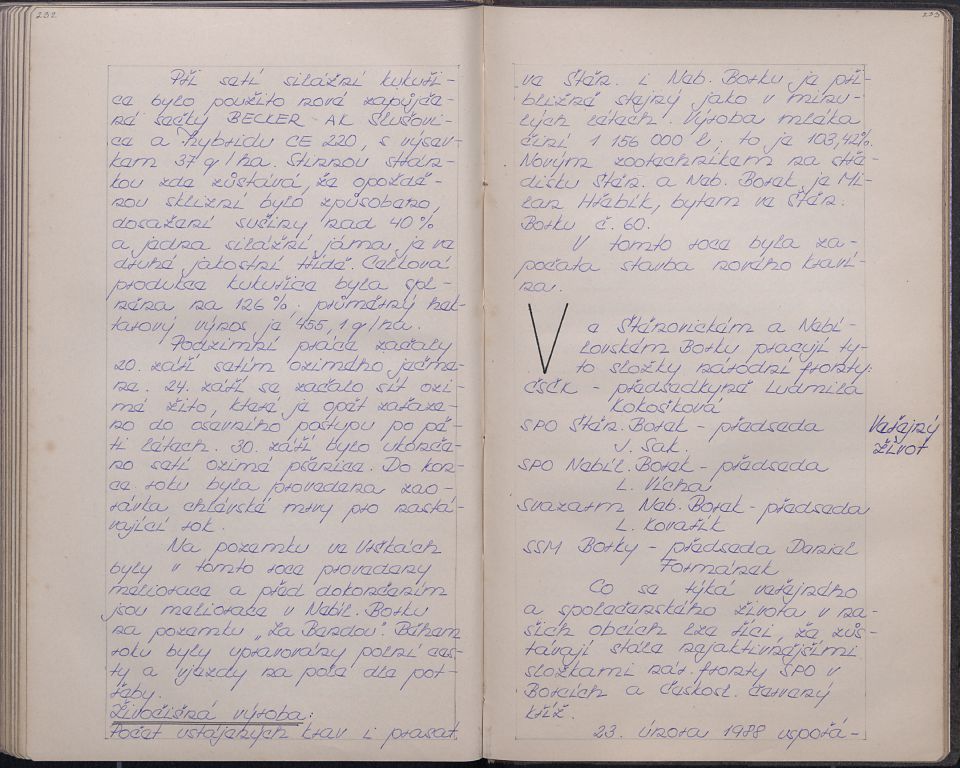 232
Při setí silážní kukuři-
ce bylo použito nové zapůjče-
né sečky BECKER - AK Slušovi-
ce a hybridu CE 220, s výsev-
kem 37 q/ha. Stinnou strán-
kou zde zůstává, že opoždě-
nou sklizní bylo způsobeno
dosažení sušiny nad 40 %
a jedna silážní jáma je ve
druhé jakostní třídě. Celková
produkce kukuřice byla spl-
něna na 126 %, průměrný hek-
tarový výnos je 455,1 q/ha.
Podzimní práce začaly
20. září setím ozimého ječme-
ne. 24. září se začalo sít ozi-
mé žito, které je opět zařaze-
no do osevního postupu po pě-
ti létech. 30. září bylo ukonče-
no setí ozimé pšenice. Do kon-
ce roku byla provedena zao-
rávka chlévské mrvy pro nastá-
vající rok.
Na pozemku ve Vrškách
byly v tomto roce provedeny
meliorace a před dokončením
jsou meliorace v Nebíl. Borku
na pozemku „Za Bendou". Během
roku byly upravovány polní ces-
ty a vjezdy na pole dle pot-
řeby.
Živočišná výroba:
Počet ustájených krav i prasat
233
ve Štěn. i Neb. Borku je při-
bližně stejný jako v minu-
lých létech. Výroba mléka
činí 1 156 000 l. to je 103,42%.
Novým zootechnikem na stře-
disku Štěn. a Neb. Borek je Mi-
lan Hřebík, bytem ve Štěn.
Borku č. 60.
V tomto roce byla za-
počata stavba nového kraví-
na.
Ve Štěnovickém a Nebí-
lovském Borku pracují ty-
to složky národní fronty:
ČSČK - předsedkyně Ludmila
Kokošková
SPO Štěn. Borek - předseda
J. Sak.
SPO Nebíl. Borek - předseda
L. Víchá
Svazarm Neb. Borek - předseda
L. Kovařík
SSM Borky - předseda Daniel
Formánek
Veřejný
život
Co se týká veřejného
a společenského života v na-
šich obcích lze říci, že zůs-
távají stále nejaktivnějšími
složkami nár. fronty SPO v
Borcích a českosl. červený
kříž.
23. února 1988 uspořá-